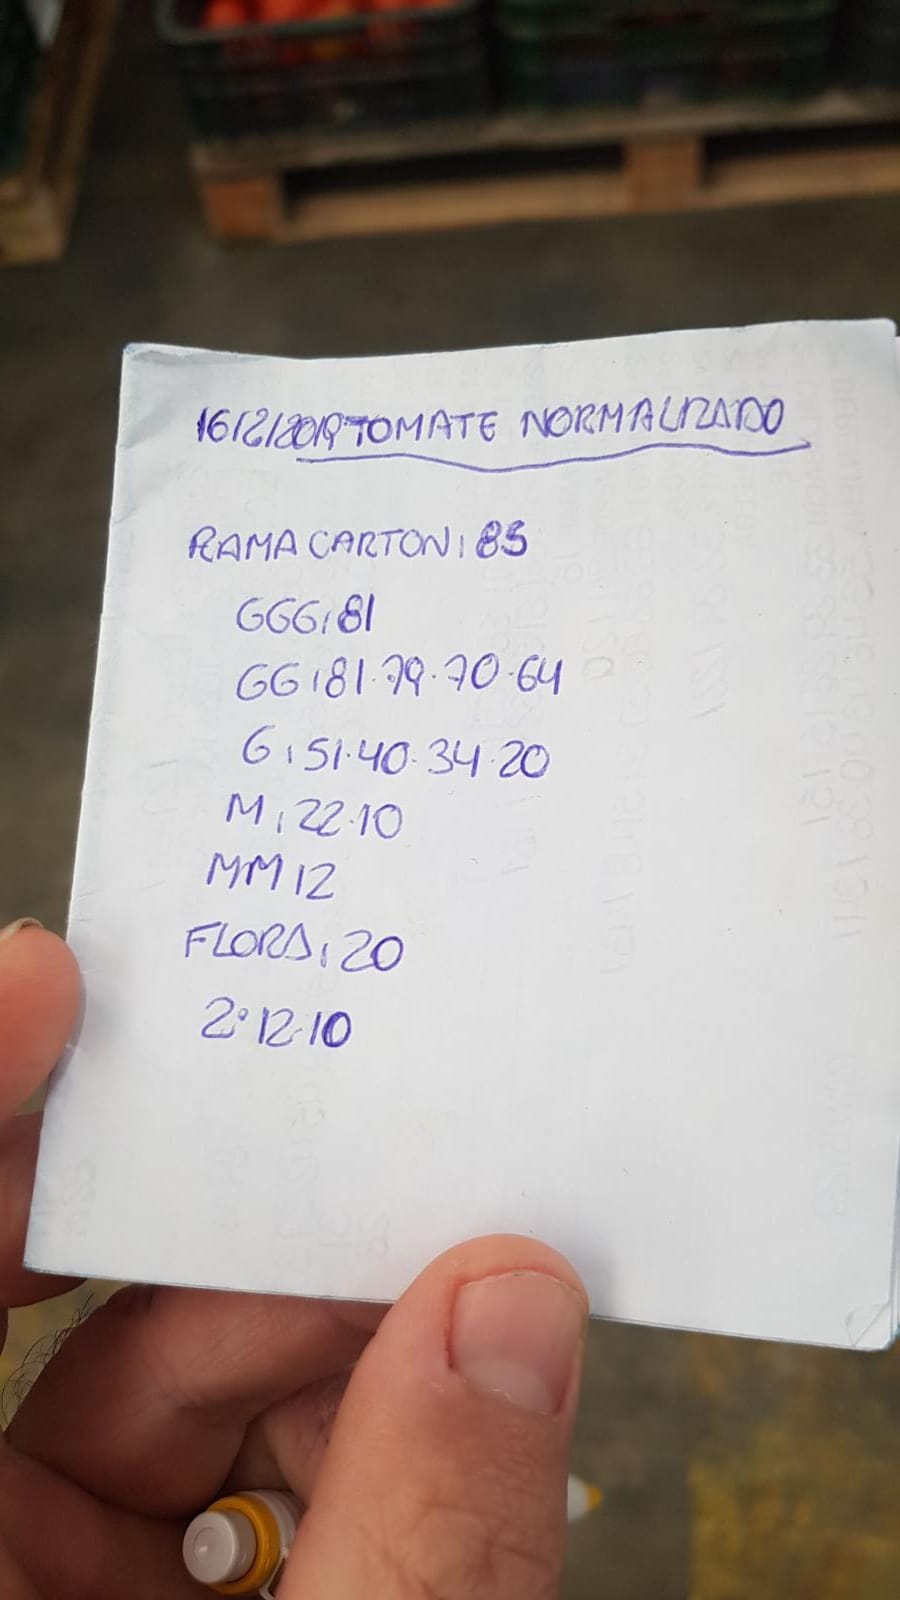 16/2/2019 TOMATE NORMALIZADO
RAMA CARTON: 85
GGG: 81
GG: 81.79.70.64
G: 51.40.34.20
M: 22.10
MM 12
FLORA: 20
2º 12.10